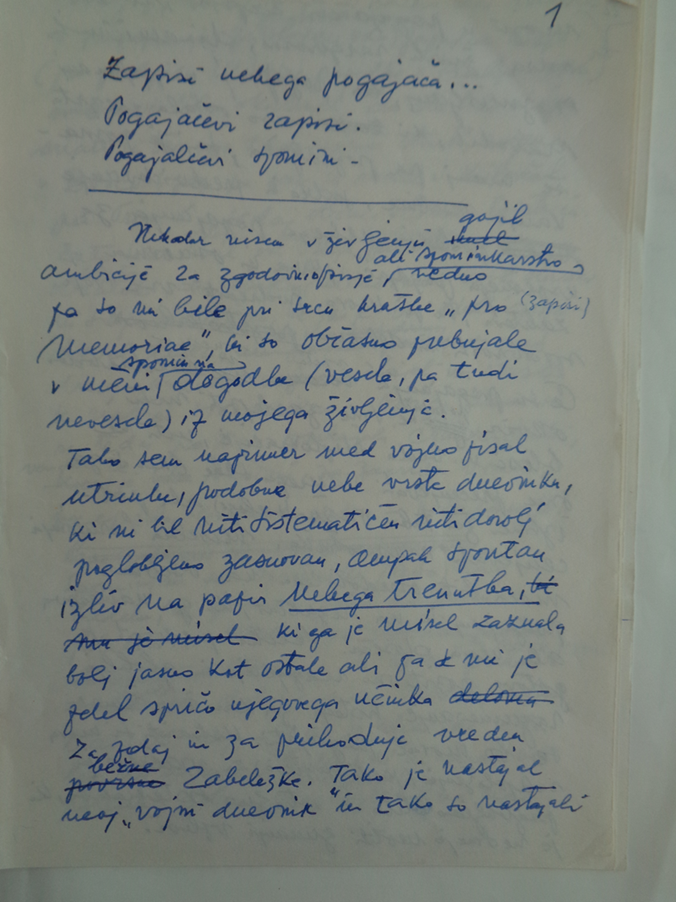 1
Zapisi nekega pogajača...
Pogajačevi zapisi.
Pogajalčevi spomini -
gojil
Nikdar nisem v življenju imel
ali spominkarstvo
ambicije za zgodovinopisje, vedno
pa so mi bile pri srcu kratke „pro (zapisi)
memoriae“, ki so občasno prebujale
spomin na
v meni dogodke (vesele, pa tudi
nevesele) iz mojega življenja.
Tako sem naprimer med vojno pisal
utrinke, podobne neke vrste dnevniku,
ki ni bil niti sistematičen niti dovolj
poglobljeno zasnovan, ampak spontan
izliv na papir nekega trenutka, ki
mu je misel ki ga je misel zaznala
bolj jasno kot ostale ali pa se mi je
zdel spričo njegovega učinka delovna
za zdaj in za prihodnje vreden
bežne
površne zabeležke. Tako je nastajal
moj „vojni dnevnik“ in tako so nastajali